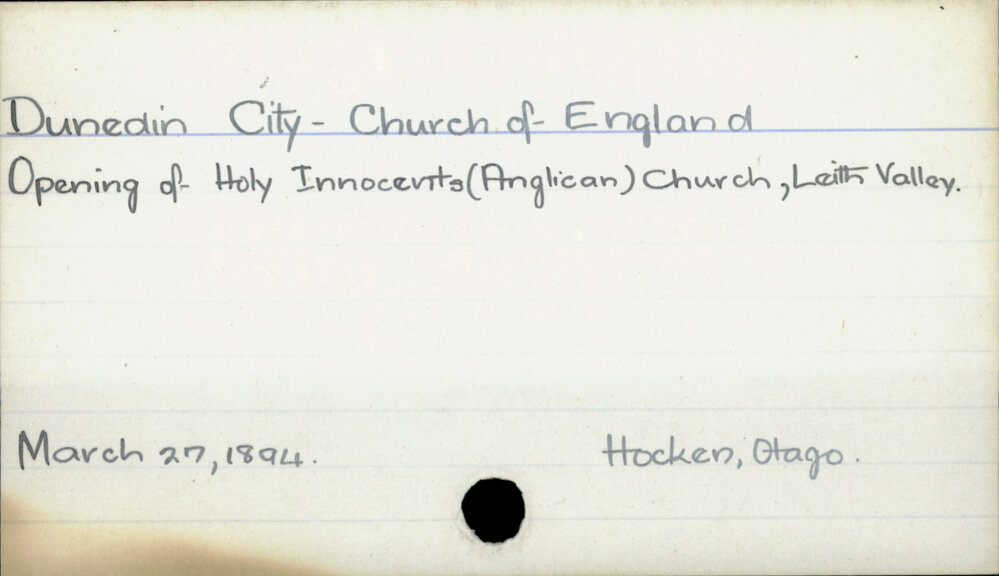 Dunedin City - Church of England
Opening of Holy Innocents (Anglican) Church, Leith Valley.
March 27, 1894.
Hocken, Otago.